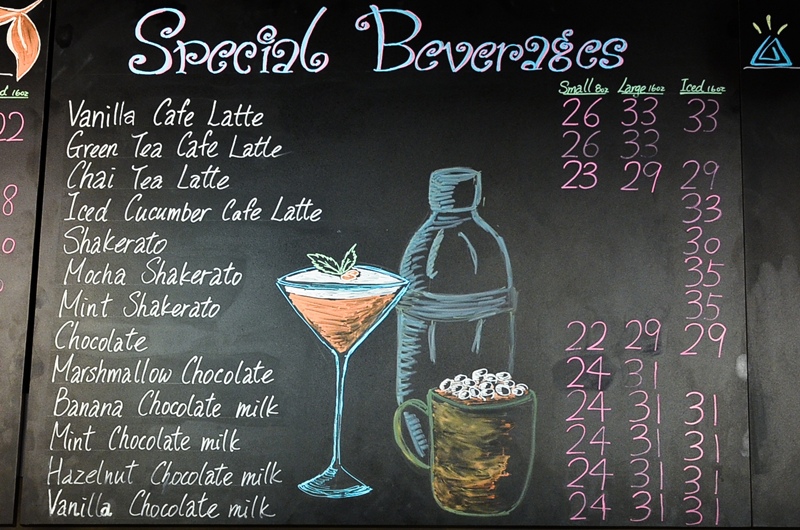 Special Beverages
Small 8oz Large 16oz Iced 16oz
Vanilla Cafe Latte 26 33 33
Green Tea Cafe Latte 26 33
Chai Tea Latte 23 29 29
Iced Cucumber Cafe Latte 33
Shakerato 30
Mocha Shakerato 35
Mint Shakerato 35
Chocolate 22 29 29
Marshmallow Chocolate 24 31
Banana Chocolate milk 24 31 31
Mint Chocolate milk 24 31 31
Hazelnut Chocolate milk 24 31 31
Vanilla Chocolate milk 24 31 31